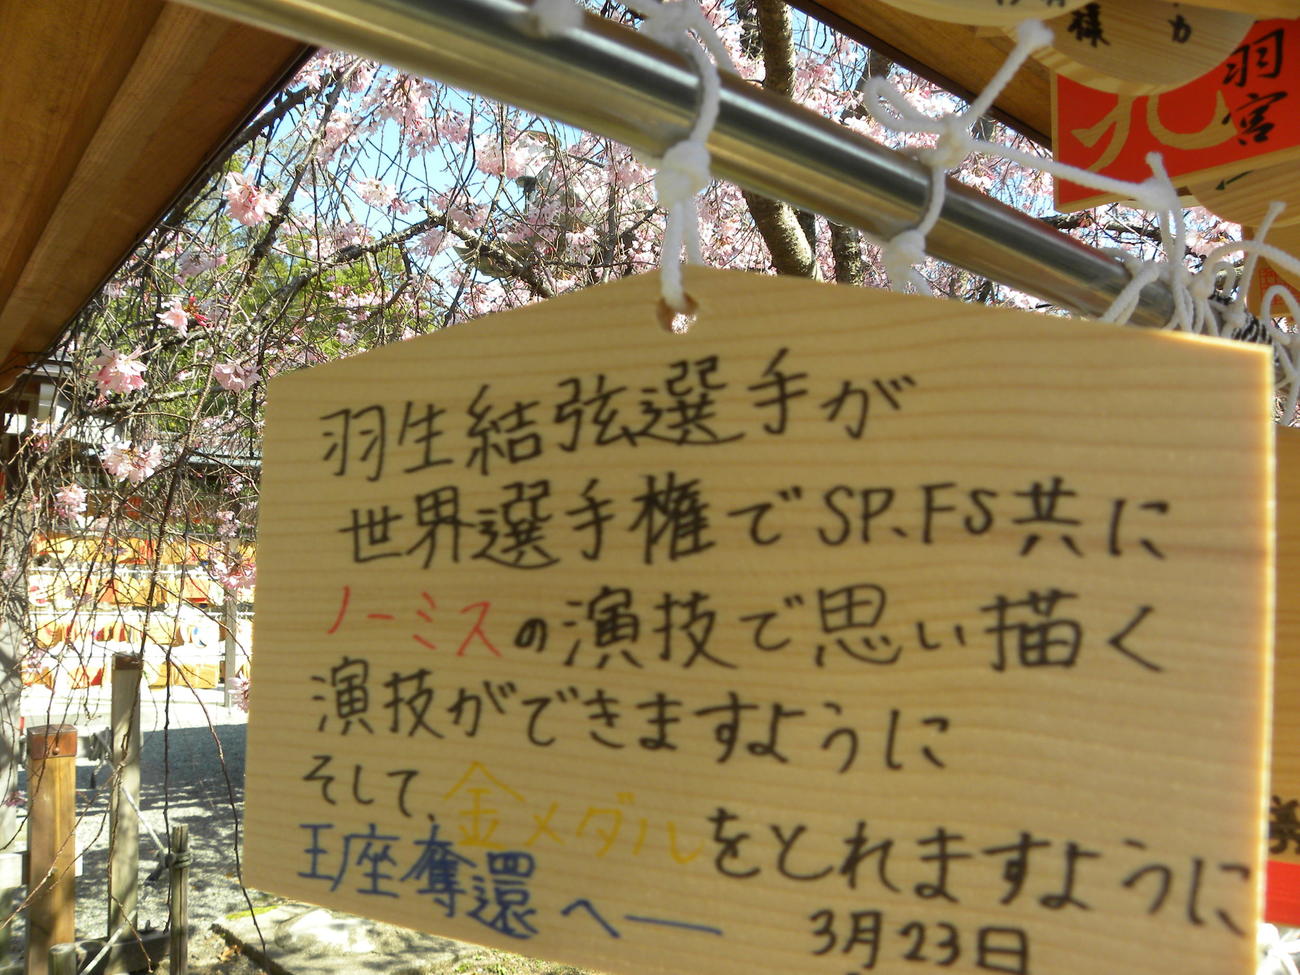 様
カ
羽
宮
羽生結弦選手が
世界選手権でSP、FS共に
ノーミスの演技で思い描く
演技ができますように
そして、金メダルをとれますように
王座奪還へー
3月23日